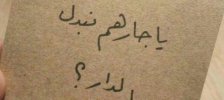 ياجارهم نبدل
الدار؟